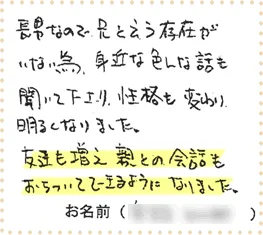 長男なので、兄と云う存在が
いない為、身近な色んな話も
聞いて下さり、性格も変わり、
明るくなりました。
友達も増え親との会話も
おちついてできるようになりました。
お名前（　　　　）